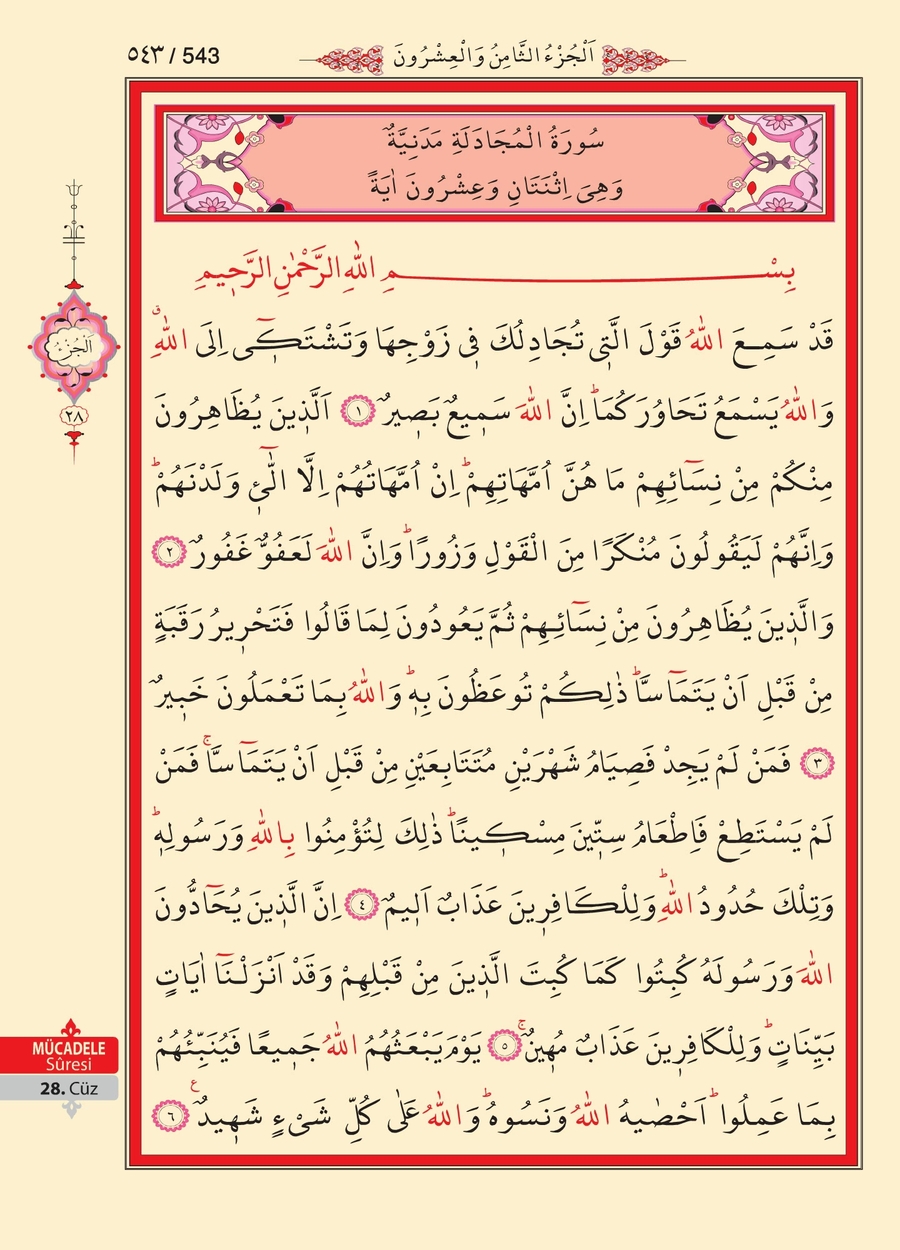 ٥٤٣ / 543
اَلْجُزْءُ الثَّامِنُ وَالْعِشْرُونَ
سُورَةُ الْمُجَادَلَةِ مَدَنِيَّةٌ
وَهِىَ اِثْنَتَانِ وَعِشْرُونَ اٰيَةً
بِسْمِ اللّٰهِ الرَّحْمٰنِ الرَّحٖيمِ
قَدْ سَمِعَ اللّٰهُ قَوْلَ الَّتٖى تُجَادِلُكَ فٖى زَوْجِهَا وَتَشْتَكٖٓى اِلَى اللّٰهِࣗ
وَاللّٰهُ يَسْمَعُ تَحَاوُرَكُمَاؕ اِنَّ اللّٰهَ سَمٖيعٌ بَصٖيرٌ ﴿١﴾ اَلَّذٖينَ يُظَاهِرُونَ
مِنْكُمْ مِنْ نِسَٓائِهِمْ مَا هُنَّ اُمَّهَاتِهِمْؕ اِنْ اُمَّهَاتُهُمْ اِلَّا الّٰٓئٖ وَلَدْنَهُمْؕ
وَاِنَّهُمْ لَيَقُولُونَ مُنْكَرًا مِنَ الْقَوْلِ وَزُورًاؕ وَاِنَّ اللّٰهَ لَعَفُوٌّ غَفُورٌ ﴿٢﴾
وَالَّذٖينَ يُظَاهِرُونَ مِنْ نِسَٓائِهِمْ ثُمَّ يَعُودُونَ لِمَا قَالُوا فَتَحْرٖيرُ رَقَبَةٍ
مِنْ قَبْلِ اَنْ يَتَمَٓاسَّاؕ ذٰلِكُمْ تُوعَظُونَ بِهٖؕ وَاللّٰهُ بِمَا تَعْمَلُونَ خَبٖيرٌ
﴿٣﴾ فَمَنْ لَمْ يَجِدْ فَصِيَامُ شَهْرَيْنِ مُتَتَابِعَيْنِ مِنْ قَبْلِ اَنْ يَتَمَٓاسَّاۚ فَمَنْ
لَمْ يَسْتَطِعْ فَاِطْعَامُ سِتّٖينَ مِسْكٖينًاؕ ذٰلِكَ لِتُؤْمِنُوا بِاللّٰهِ وَرَسُولِهٖؕ
وَتِلْكَ حُدُودُ اللّٰهِؕ وَلِلْكَافِرٖينَ عَذَابٌ اَلٖيمٌ ﴿٤﴾ اِنَّ الَّذٖينَ يُحَٓادُّونَ
اللّٰهَ وَرَسُولَهُ كُبِتُوا كَمَا كُبِتَ الَّذٖينَ مِنْ قَبْلِهِمْ وَقَدْ اَنْزَلْنَٓا اٰيَاتٍ
بَيِّنَاتٍؕ وَلِلْكَافِرٖينَ عَذَابٌ مُهٖينٌۚ ﴿٥﴾ يَوْمَ يَبْعَثُهُمُ اللّٰهُ جَمٖيعًا فَيُنَبِّئُهُمْ
بِمَا عَمِلُواؕ اَحْصٰيهُ اللّٰهُ وَنَسُوهُؕ وَاللّٰهُ عَلٰى كُلِّ شَىْءٍ شَهٖيدٌ ع ﴿٦﴾
اَلْجُزْءُ
٢٨
MÜCADELE
Sûresi
28. Cüz